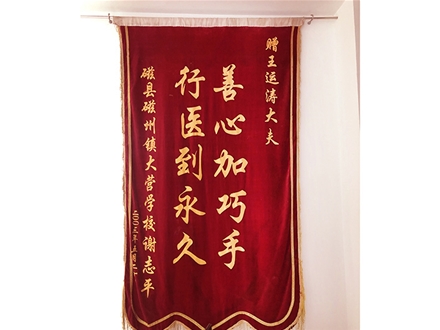 赠王运涛大夫
善心加巧手
行医到永久
磁县磁州镇大营学校谢志平